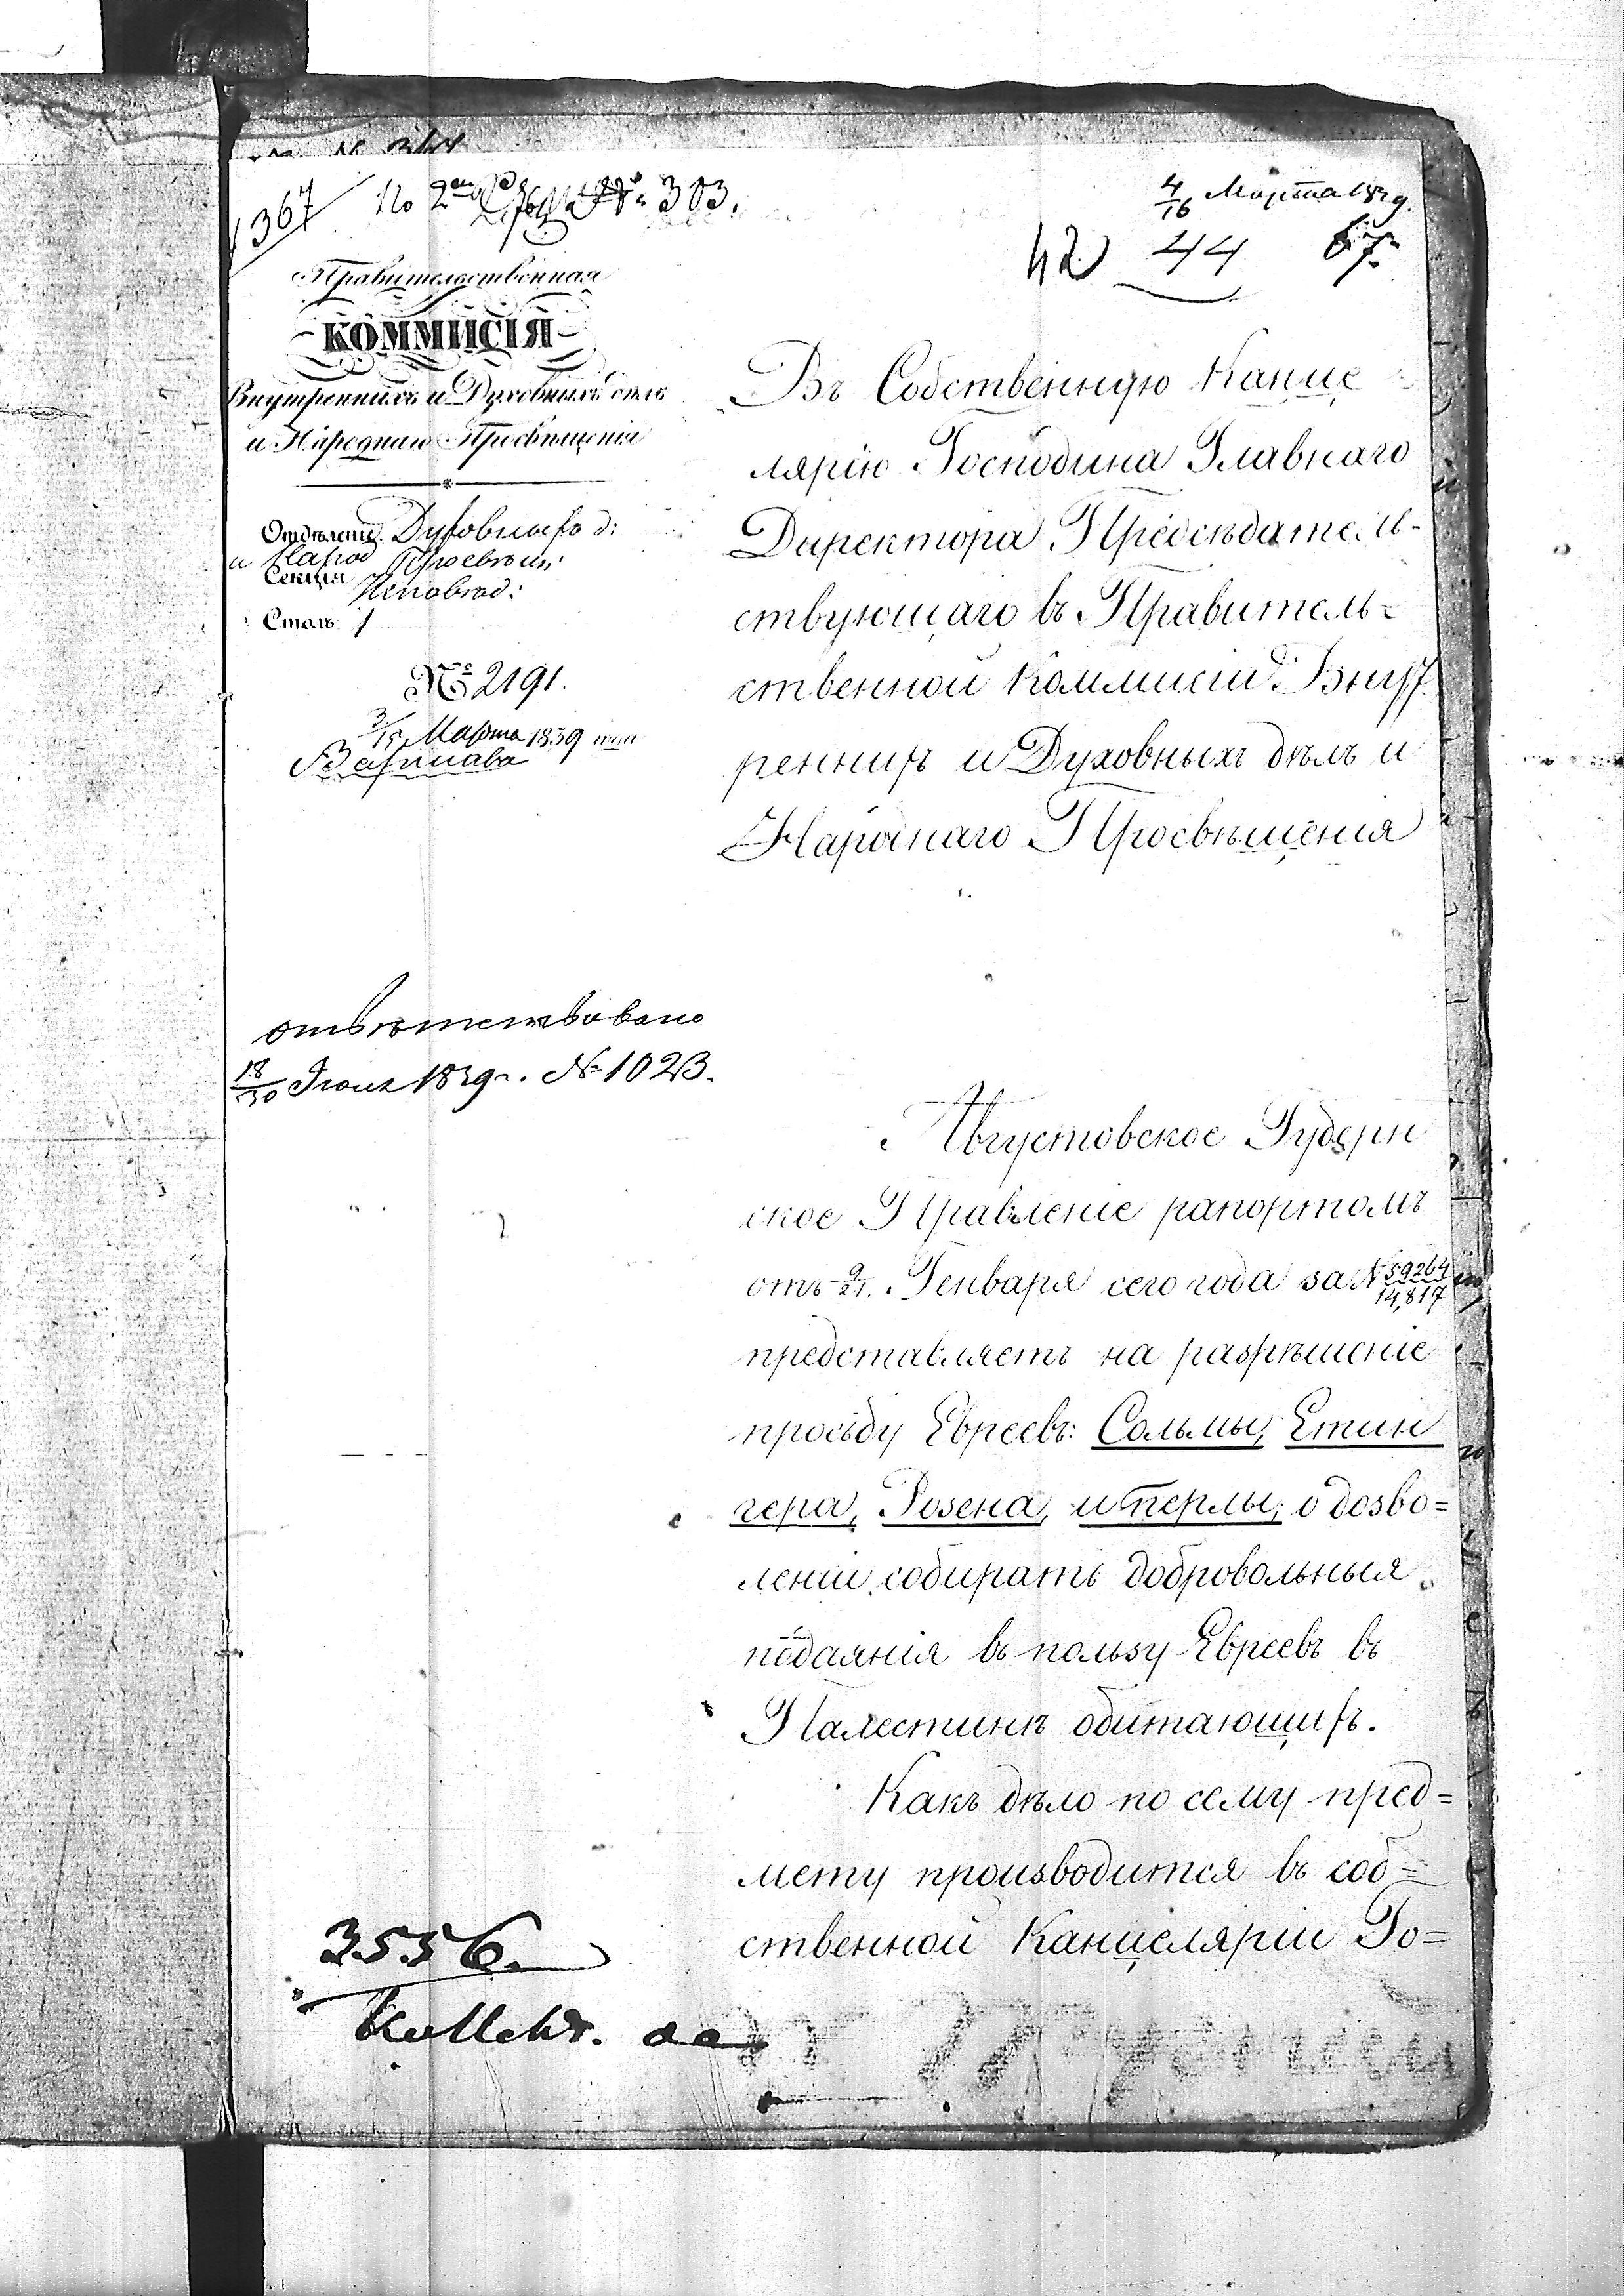 1367
По 2му
№ 303.
4/16 Марта 1839.
42 44 67.
Правительственная
КОММИСІЯ
Внутреннихъ и Духовныхъ дѣлъ
и Народнаго Просвѣщенія
Отдѣленіе Духовныхъ д:
и Народ Просвѣщ:
Секція Исповѣд:
Столъ 1
№ 2191.
3/15 Марта 1839 года
Варшава
Въ Собственную Канце
лярію Господина Главнаго
Директора Предсѣдатель-
ствующаго въ Правитель=
ственной Коммисіи Внут
реннихъ и Духовныхъ дѣлъ и
Народнаго Просвѣщенія
отвѣтствовано
18/30 Іюня 1839 г. № 1023.
Августовское Губерн
ское Правленіе рапортомъ
отъ 9/21. Генваря сего года за № 59264/14,817
представляетъ на разрѣшеніе
просьбу Евреевъ: Сольмы, Етин
гера, Розена, и Перлы, о дозво=
леніи собирать добровольныя
подаянія въ пользу Евреевъ въ
Палестинѣ обитающихъ.
Какъ дѣло по сему пред=
мету производится въ соб=
ственной Канцеляріи Го=
3556.